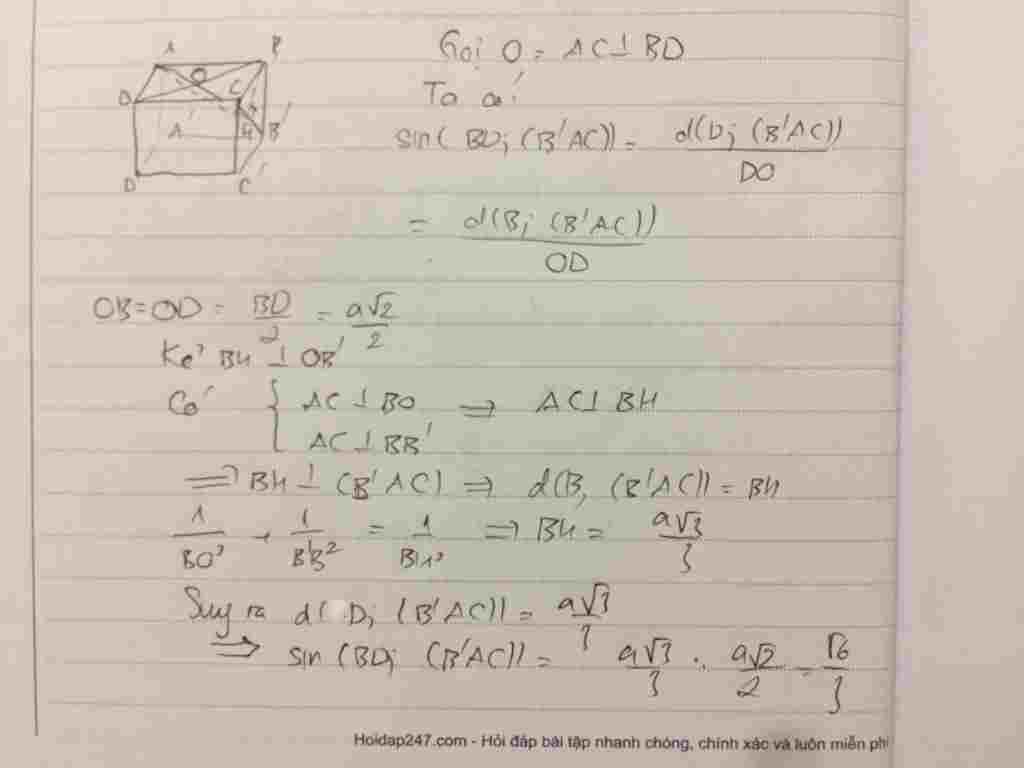 A B
D O C
A' H B'
D C'
Gọi O = AC ⊥ BD
Ta có
sin(BD; (B'AC)) = d(D; (B'AC)) / DO
= d(B; (B'AC)) / OD
OB = OD = BD/2 = a√2/2
Kẻ BH ⊥ OB'
Có { AC ⊥ BO ⇒ AC ⊥ BH
AC ⊥ BB'
⇒ BH ⊥ (B'AC) ⇒ d(B, (B'AC)) = BH
1/BO² + 1/BB'² = 1/BH² ⇒ BH = a√3/3
Suy ra d(D; (B'AC)) = a√3/3
⇒ sin(BD; (B'AC)) = a√3/3 : a√2/2 = √6/3
Hoidap247.com - Hỏi đáp bài tập nhanh chóng, chính xác và luôn miễn phí